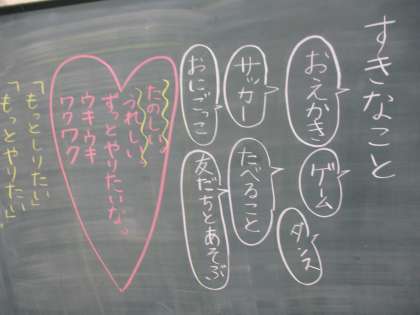 すきなこと
おえかき
ゲーム
ダンス
サッカー
たべること
おにごっこ
友だちとあそぶ
たのしい
うれしい
ずっとやりたいな。
ウキウキ
ワクワク
「もっとしりたい」
「もっとやりたい」